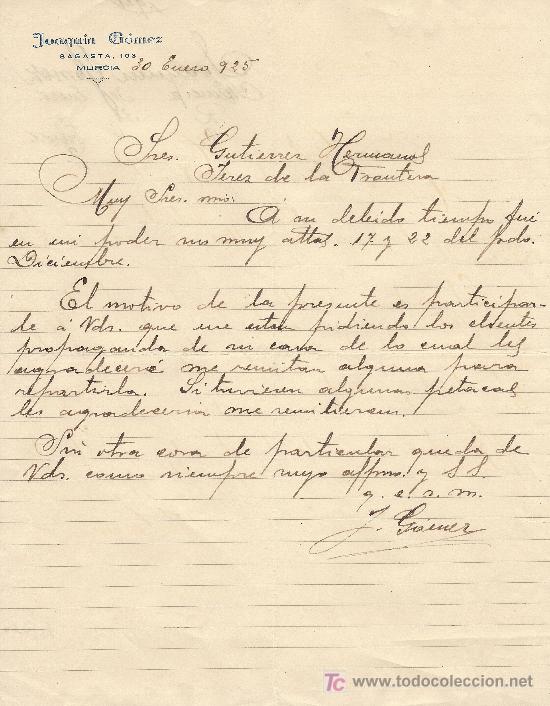 Joaquin Gómez
SAGASTA, 103
MURCIA
20 Enero 925
Sres. Gutierrez Hermanos
Jerez de la Frontera
Muy Sres. mio:
A su debido tiempo fué
en mi poder sus muy attas. 17 y 22 del pdo.
Diciembre.
El motivo de la presente es participar-
le á Vds. que me estan pidiendo los clientes
propaganda de su casa de lo cual les
agradeceré me remitan alguna para
repartirla. Si tuvieran algunas petacas
les agradeceria me remitieran.
Sin otra cosa de particular queda de
Vds. como siempre suyo affmo. y S.S.
q. e. s. m.
J. Gómez
TC
www.todocoleccion.net